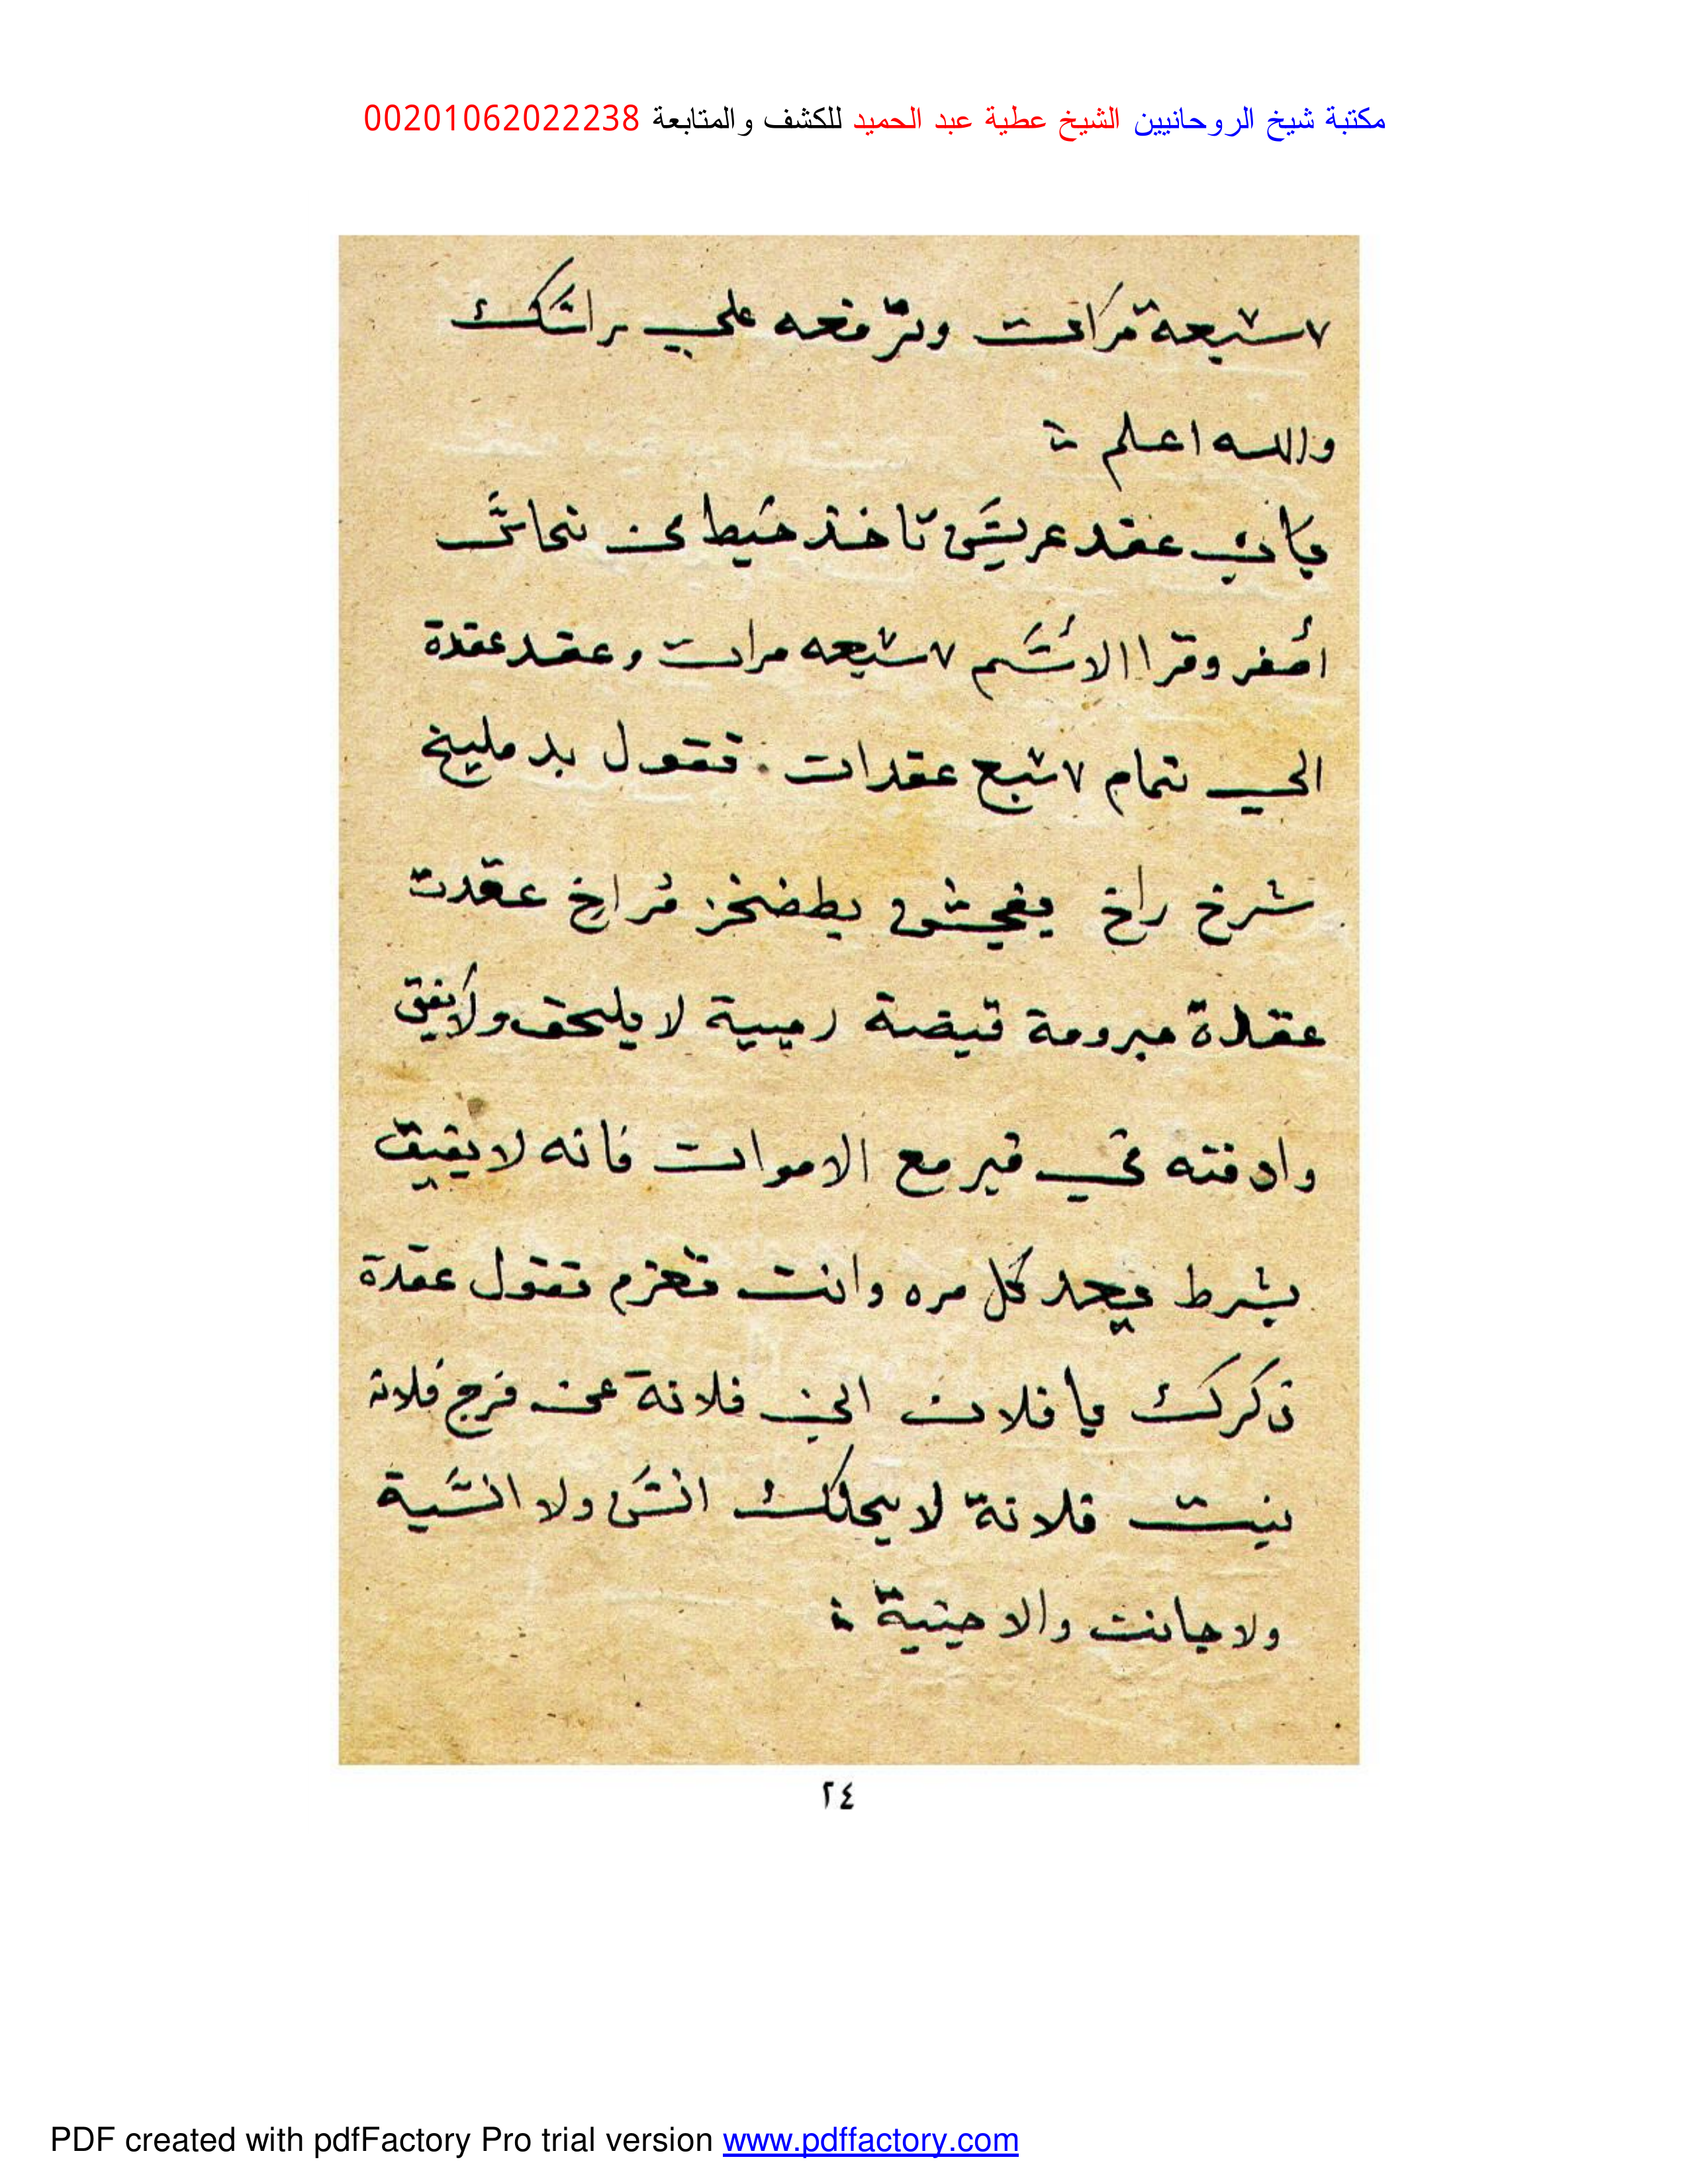 مكتبة شيخ الروحانيين الشيخ عطية عبد الحميد للكشف والمتابعة 00201062022238
٧ سبعة مرات وترفعه علي راسك
والله اعلم
باب عقد عريس تاخذ خيط من نحاس
أصفر وقرا الاسم ٧ سبعه مرات وعقد عقدة
الي تمام ٧ سبع عقدات . تقول بد مليخ
شرخ راخ عقدت
عقدة مبرومة لا يلحق ولا يفيق
وادفنه في قبر مع الاموات فانه لا يفيق
بشرط كل مره وانت تعزم تقول عقدة
ذكرك يا فلان ابن فلانة عن فرج فلانة
بنت فلانة لا يحلك انس ولا انسية
ولا جانت والا جنية
٢٤
PDF created with pdfFactory Pro trial version www.pdffactory.com